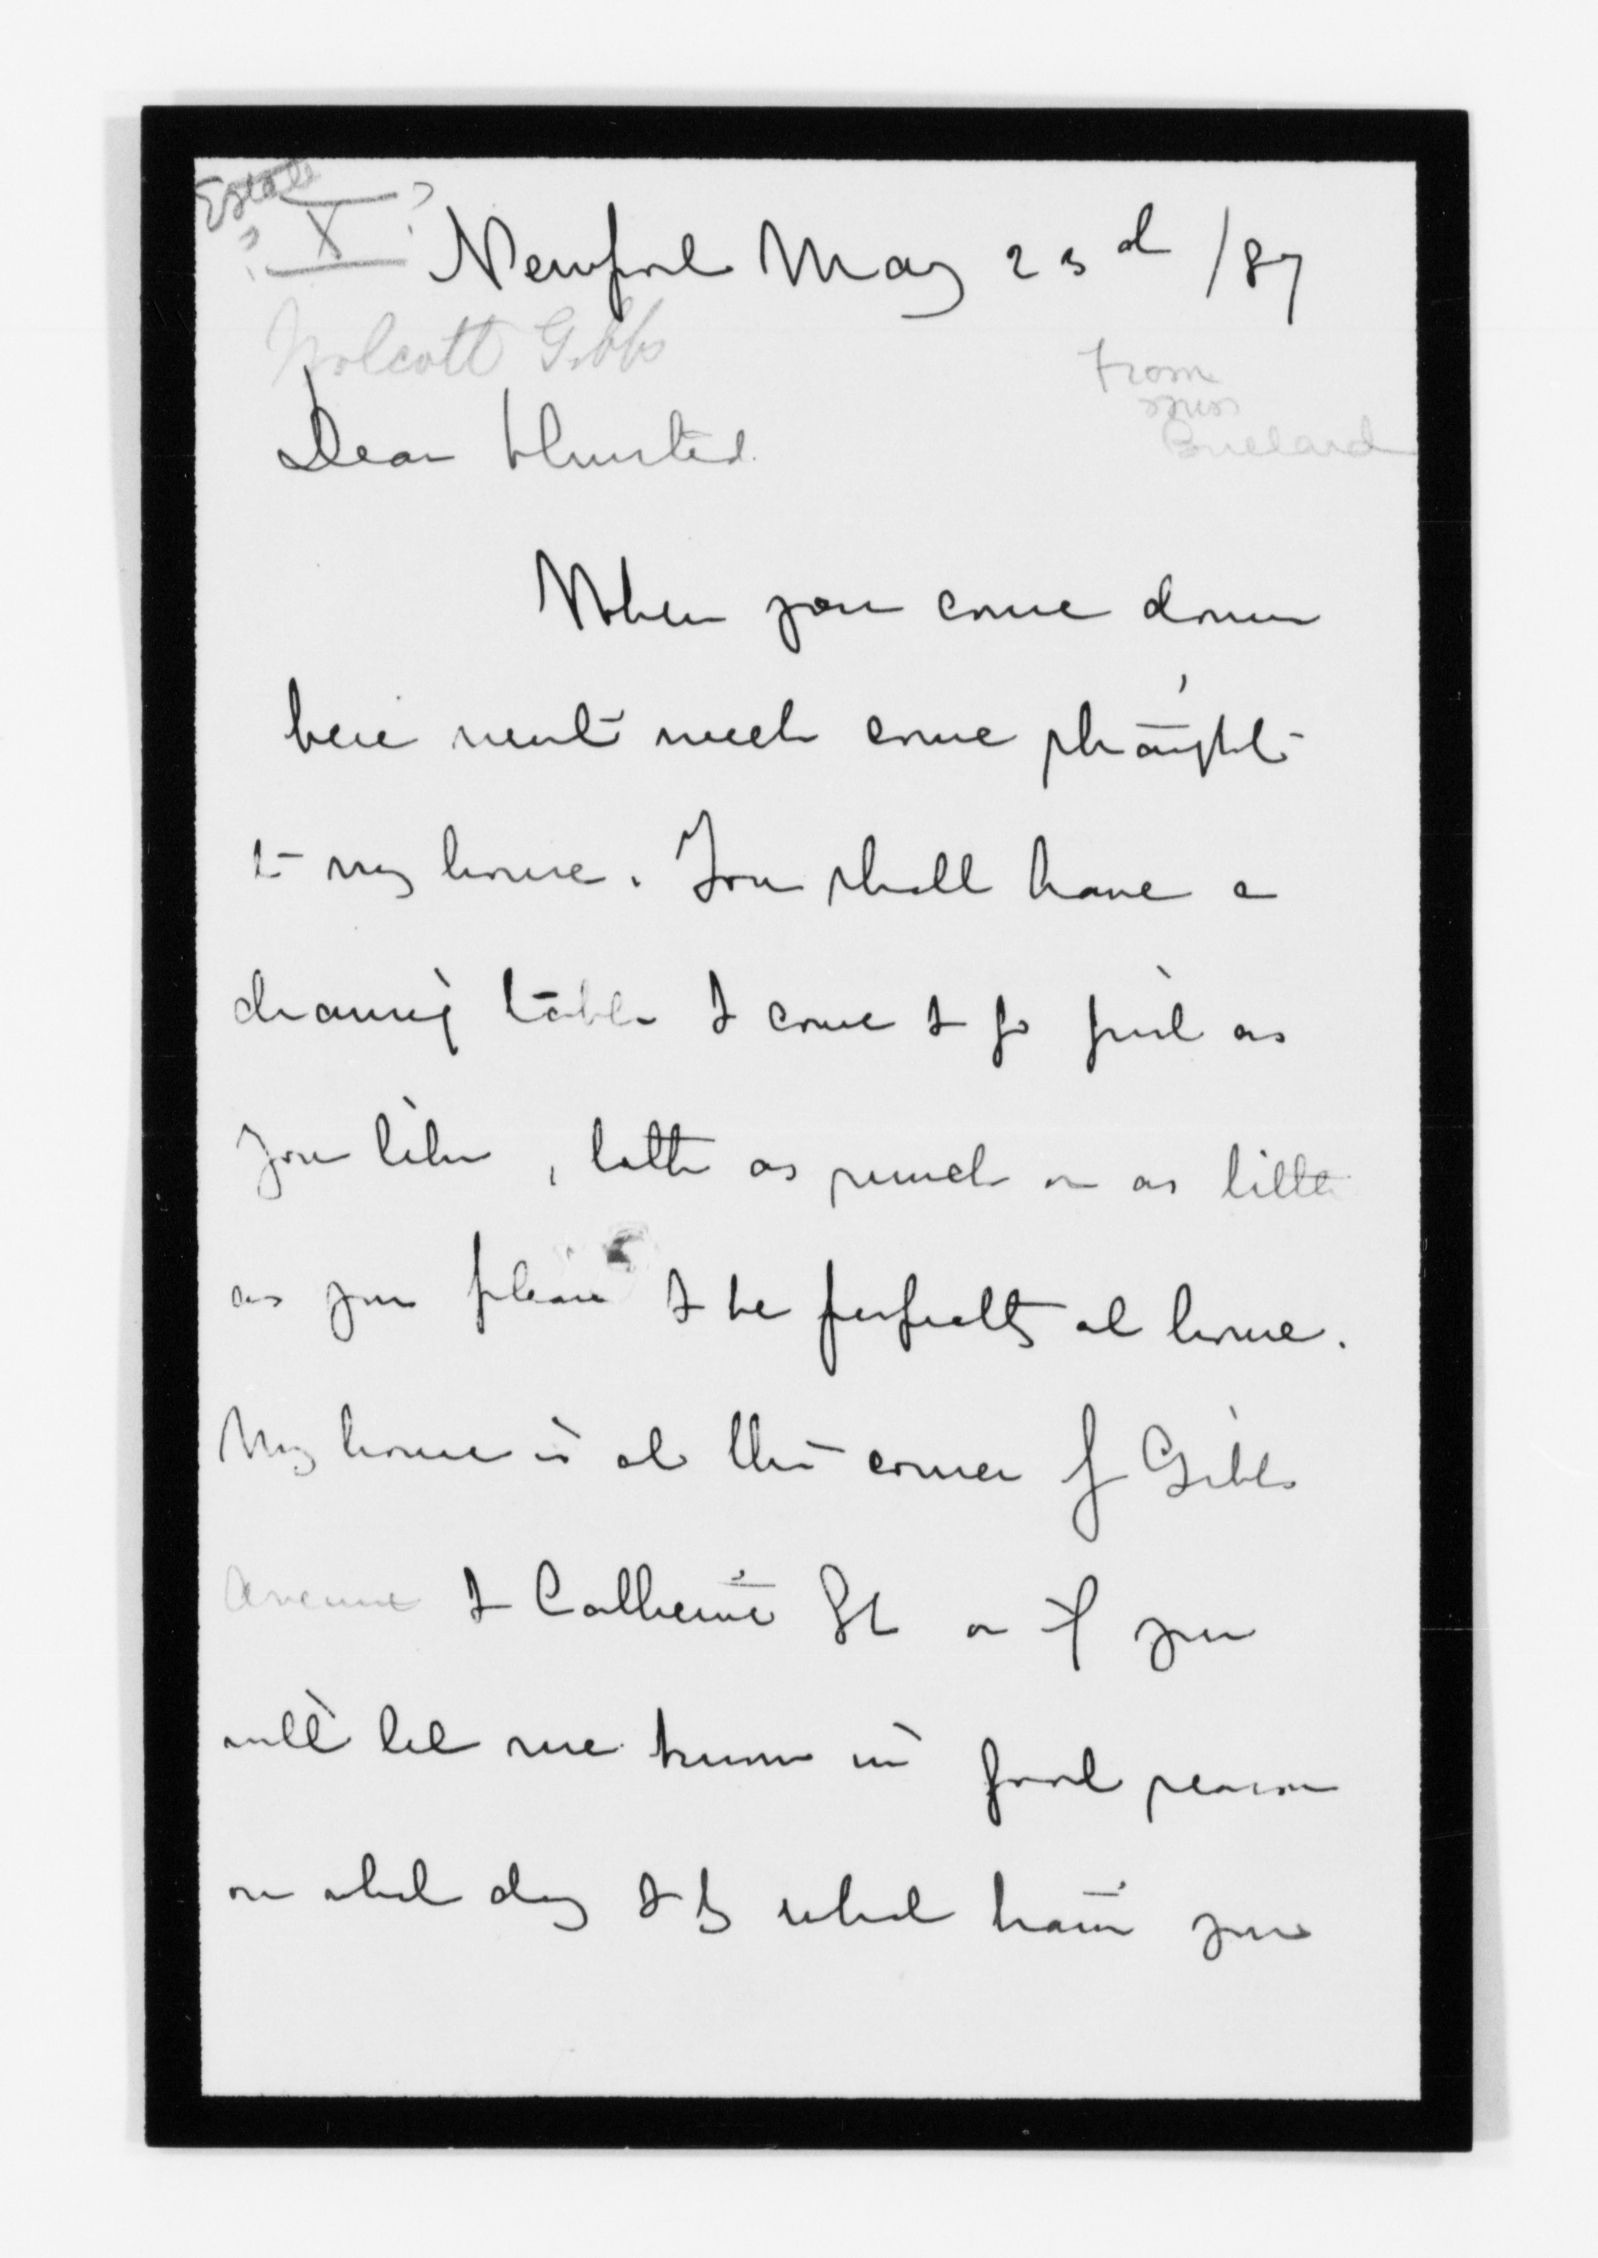 Estate
? X ?
Newport May 23d /87
Wolcott Gibbs
From
Miss
Bullard
Dear Olmsted.
When you come down
here next week come straight
to my house. You shall have a
drawing table & come & go just as
you like, talk as much or as little
as you please & be perfectly at home.
My house is at the corner of Gibbs
Avenue & Catherine St or if you
will let me know in good season
on what day & by what train you